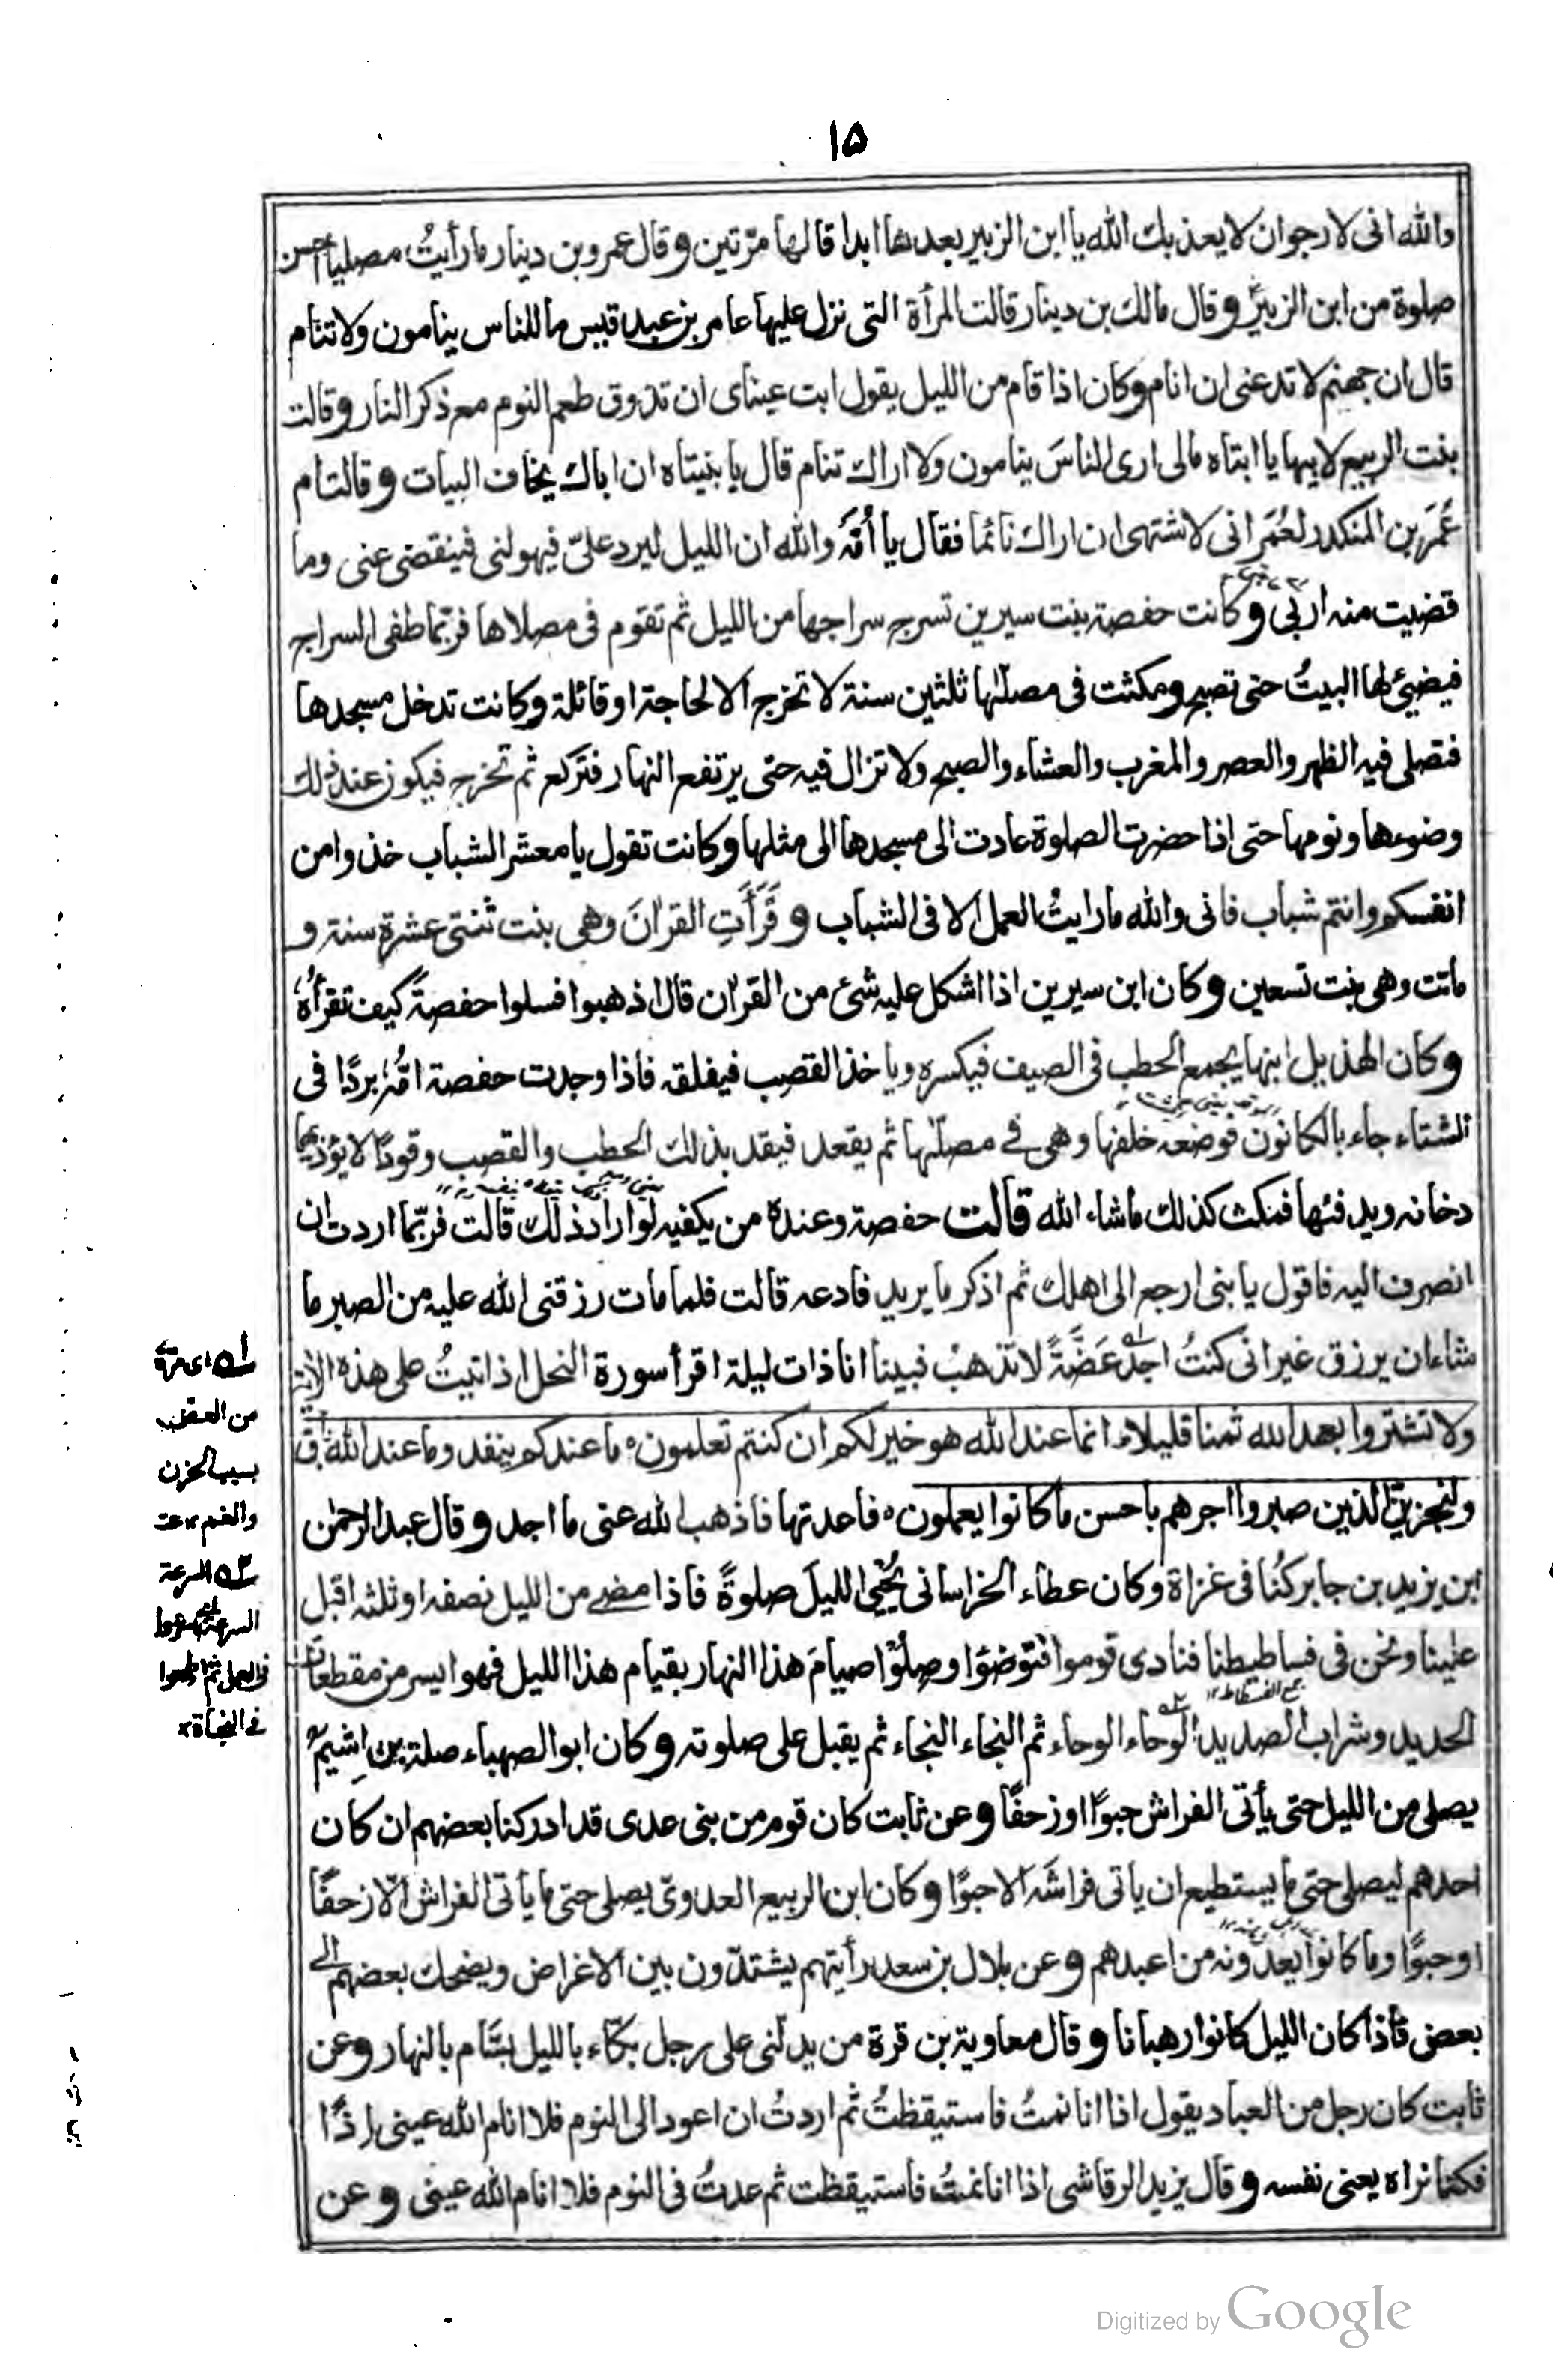 ۱۵
والله انى لارجوان لا يعذبك الله يا ابن الزبير بعدها ابدا قالها مرّتين وقال عمرو بن دينار ما رأيتُ مصليا احسن
صلوة من ابن الزبيرؓ وقال مالك بن دينار قالت المرأة التى نزل عليها عامر بن عبد قيس ما للناس ينامون ولا تنام
قال ان جهنم لا تدعنى ان انام وكان اذا قام من الليل يقول ابت عيناى ان تذوق طعم النوم مع ذكر النار وقالت
بنت الربيع لابيها يا ابتاه مالى ارى الناسَ ينامون ولا اراك تنام قال يا بنيتاه ان اباك يخاف البيات وقالت ام
عُمَر بن المنكدر لعُمَر انى لاشتهى ان اراك نائما فقال يا اُمَّه والله ان الليل ليرد علىّ فيهولنى فينقضى عنى وما
قضيت منه اربى وكانت حفصة بنت سيرين تسرج سراجها من الليل ثم تقوم فى مصلاها فربّما طفى السراج
فيضيئ لها البيتُ حتى تصبح ومكثت فى مصلّٰها ثلثين سنة لا تخرج الا لحاجة او قائلة وكانت تدخل مسجدها
فتصلى فيه الظهر والعصر والمغرب والعشاء والصبح ولا تزال فيه حتى يرتفع النهار فتركع ثم تخرج فيكون عند ذلك
وضوءها ونومها حتى اذا حضرت الصلوة عادت الى مسجدها الى مثلها وكانت تقول يا معشر الشباب خذوا من
انفسكم وانتم شباب فانى والله ما رايتُ العمل الا فى الشباب وقَرَأَتِ القراٰنَ وهى بنت ثنتى عشرة سنة و
ماتت وهى بنت تسعين وكان ابن سيرين اذا اشكل عليه شئ من القراٰن قال اذهبوا فسلوا حفصةَ كيف تقرأهٗ
وكان الهذيل ابنها يجمع الحطب فى الصيف فيكسره ويا خذ القصب فيفلقه فاذا وجدت حفصة امُّهٗ بردًا فى
الشتاء جاء بالكانون فوضعه خلفها وهى فے مصلّٰها ثم يقعد فيقد بذلك الحطب والقصب وقودًا لا يؤذيها
دخانه ويدفئها فمكث كذلك ماشاء الله قالت حفصة وعنده من يكفيه لو اراد ذلك قالت فربّما اردت ان
انصرف اليه فاقول يا بنى ارجع الى اهلك ثم اذكر ما يريد فادعه قالت فلما مات رزقنى الله عليه من الصبر ما
شاء ان يرزق غير انى كنتُ اجد غَصَّةً لا تذهبُ فبينا انا ذات ليلة اقرأ سورة النحل اذ اتيتُ على هذه الاٰية
ولا تشتروا بعهد الله ثمنا قليلا ط انما عند الله هو خير لكم ان كنتم تعلمون ه ما عندكم ينفد وما عند الله باق
ولنجزينّ الذين صبروا اجرهم باحسن ما كانوا يعملون ه فاعدتها فاذهب الله عنى ما اجد وقال عبد الرحمٰن
ابن يزيد بن جابر كُنا فى غزاة وكان عطاء الخراسانى يُحْيى الليلَ صلوةً فاذا مضے من الليل نصفه او ثلثه اقبل
علينا ونحن فى فساطيطنا فنادى قوموا فتوضؤا وصلّوا صيامَ هذا النهار بقيام هذا الليل فهو ايسر من مقطعات
الحديد وشراب الصديد الوحاء الوحاء ثم النجاء النجاء ثم يقبل على صلوته وكان ابو الصهباء صلة بن اَشيمؓ
يصلى من الليل حتى يأتى الفراش حبوًا او زحفًا وعن ثابت كان قوم من بنى عدى قد ادركنا بعضهم ان كان
احدهم ليصلى حتى ما يستطيع ان ياتى فراشَه الا حبوًا وكان ابن الربيع العدوىّ يصلى حتى ما يأتى الفراش الّا زحفًا
او حبوًا وما كانوا يعدّونه من اعبدهم وعن بلال بن سعد رأيتهم يشتدّون بين الاغراض ويضحك بعضهم الے
بعض فاذا كان الليل كانوا رهبانا وقال معاوية بن قرة من يدلّنى على رجل بكّاء بالليل بسّام بالنهار وعن
ثابت كان رجل من العباد يقول اذا انا نمتُ فاستيقظتُ ثم اردتُ ان اعود الى النوم فلا انام الله عينى اذًا
فكنا نراه يعنى نفسه وقال يزيد الرقاشى اذا انا نمتُ فاستيقظت ثم عدتُ فى النوم فلا انام الله عينى وعن
جمع الفسطاط ١٢
بسبب الحزن
والغم
السرعة
Digitized by Google